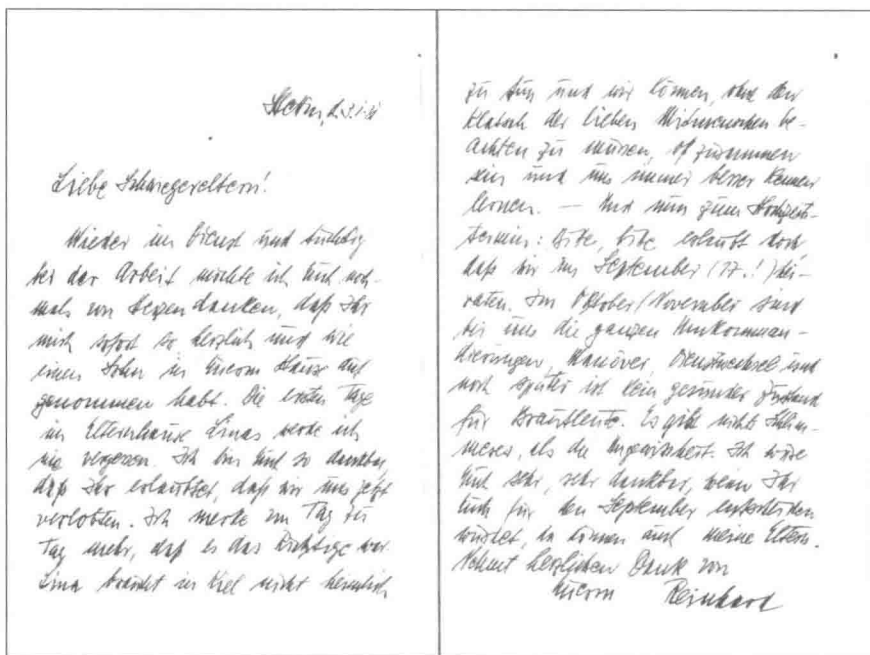 Liebe Schwiegereltern!
Wieder im Dienst und tüchtig
bei der Arbeit möchte ich Euch noch-
mals von Herzen danken, daß Ihr
mich sofort so herzlich und wie
einen Sohn in Eurem Hause auf
genommen habt. Die ersten Tage
im Elternhause Linas werde ich
nie vergessen. Ich bin Euch so dankbar,
daß Ihr erlaubtet, daß wir uns jetzt
verlobten. Ich merke von Tag zu
Tag mehr, daß es das Richtige war.
Lina braucht in Kiel nicht heimlich
zu tun und wir können, ohne den
Klatsch der lieben Mitmenschen be-
achten zu müssen, oft zusammen
sein und uns immer besser kennen
lernen. — Und nun zum Hochzeits-
termin: Bitte, bitte erlaubt doch,
daß wir im September (17.!) hei-
raten. Im Oktober/November sind
bei uns die ganzen Umkomman-
dierungen, Manöver, Dienstwechsel und
noch später ist kein gesunder Zustand
für Brautleute. Es gibt nichts Schlim-
meres, als die Ungewissheit. Ich wäre
Euch sehr, sehr dankbar, wenn Ihr
Euch für den September entscheiden
würdet, da können auch meine Eltern.
Nehmt herzlichen Dank von
Eurem Reinhard